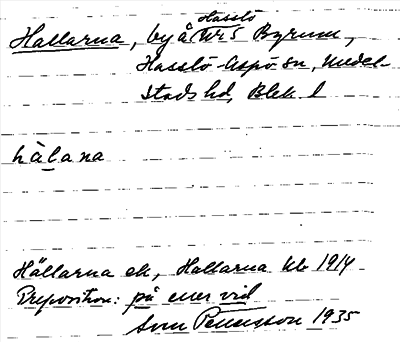 Hasslö
Hallarna, by å Nr 5 Byrum,
Hasslö-Aspö sn, Medel-
stads hd, Blek. l
hàlana
Hällarna ek, Hallarna kb 1914
Preposition: på eller vid
Sven Benson 1935